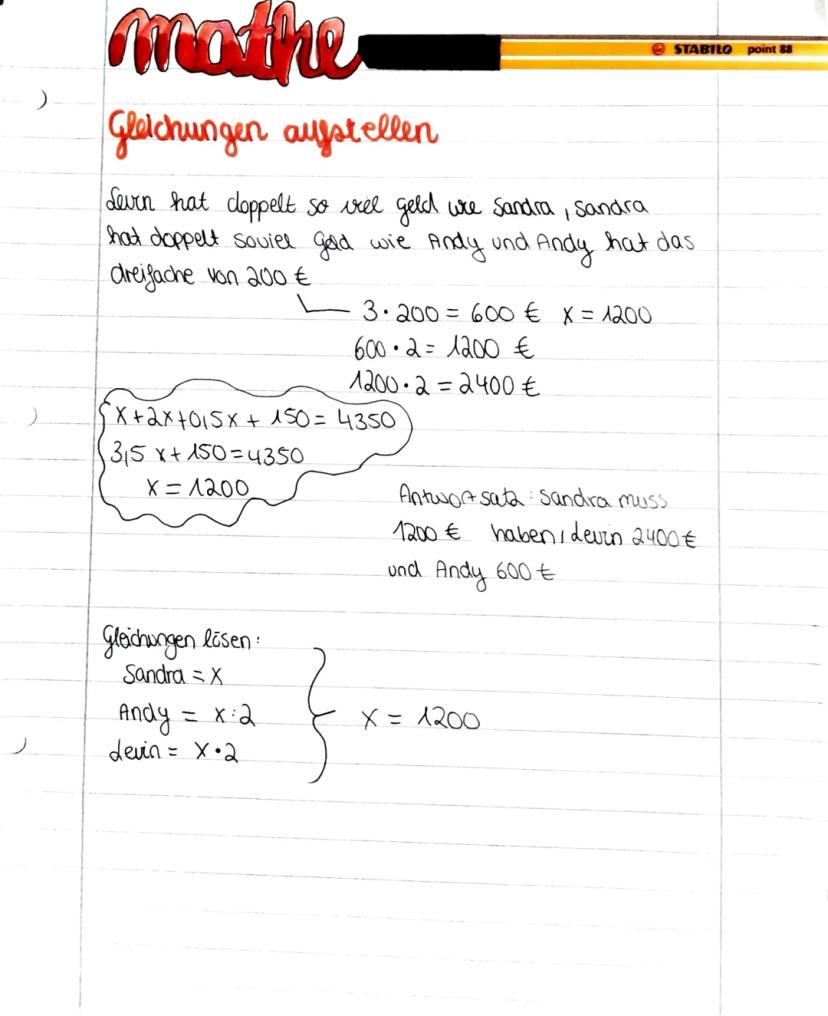 mathe
STABILO point 88
Gleichungen aufstellen
Levin hat doppelt so viel geld wie Sandra, Sandra
hat doppelt soviel Geld wie Andy und Andy hat das
dreifache von 200 €
3 · 200 = 600 € x = 1200
600 · 2 = 1200 €
1200 · 2 = 2400 €
x + 2x + 0,5x + 150 = 4350
3,5 x + 150 = 4350
x = 1200
Antwortsatz: Sandra muss
1200 € haben, Levin 2400 €
und Andy 600 €
Gleichungen lösen:
Sandra = x
Andy = x : 2
Levin = x · 2
x = 1200